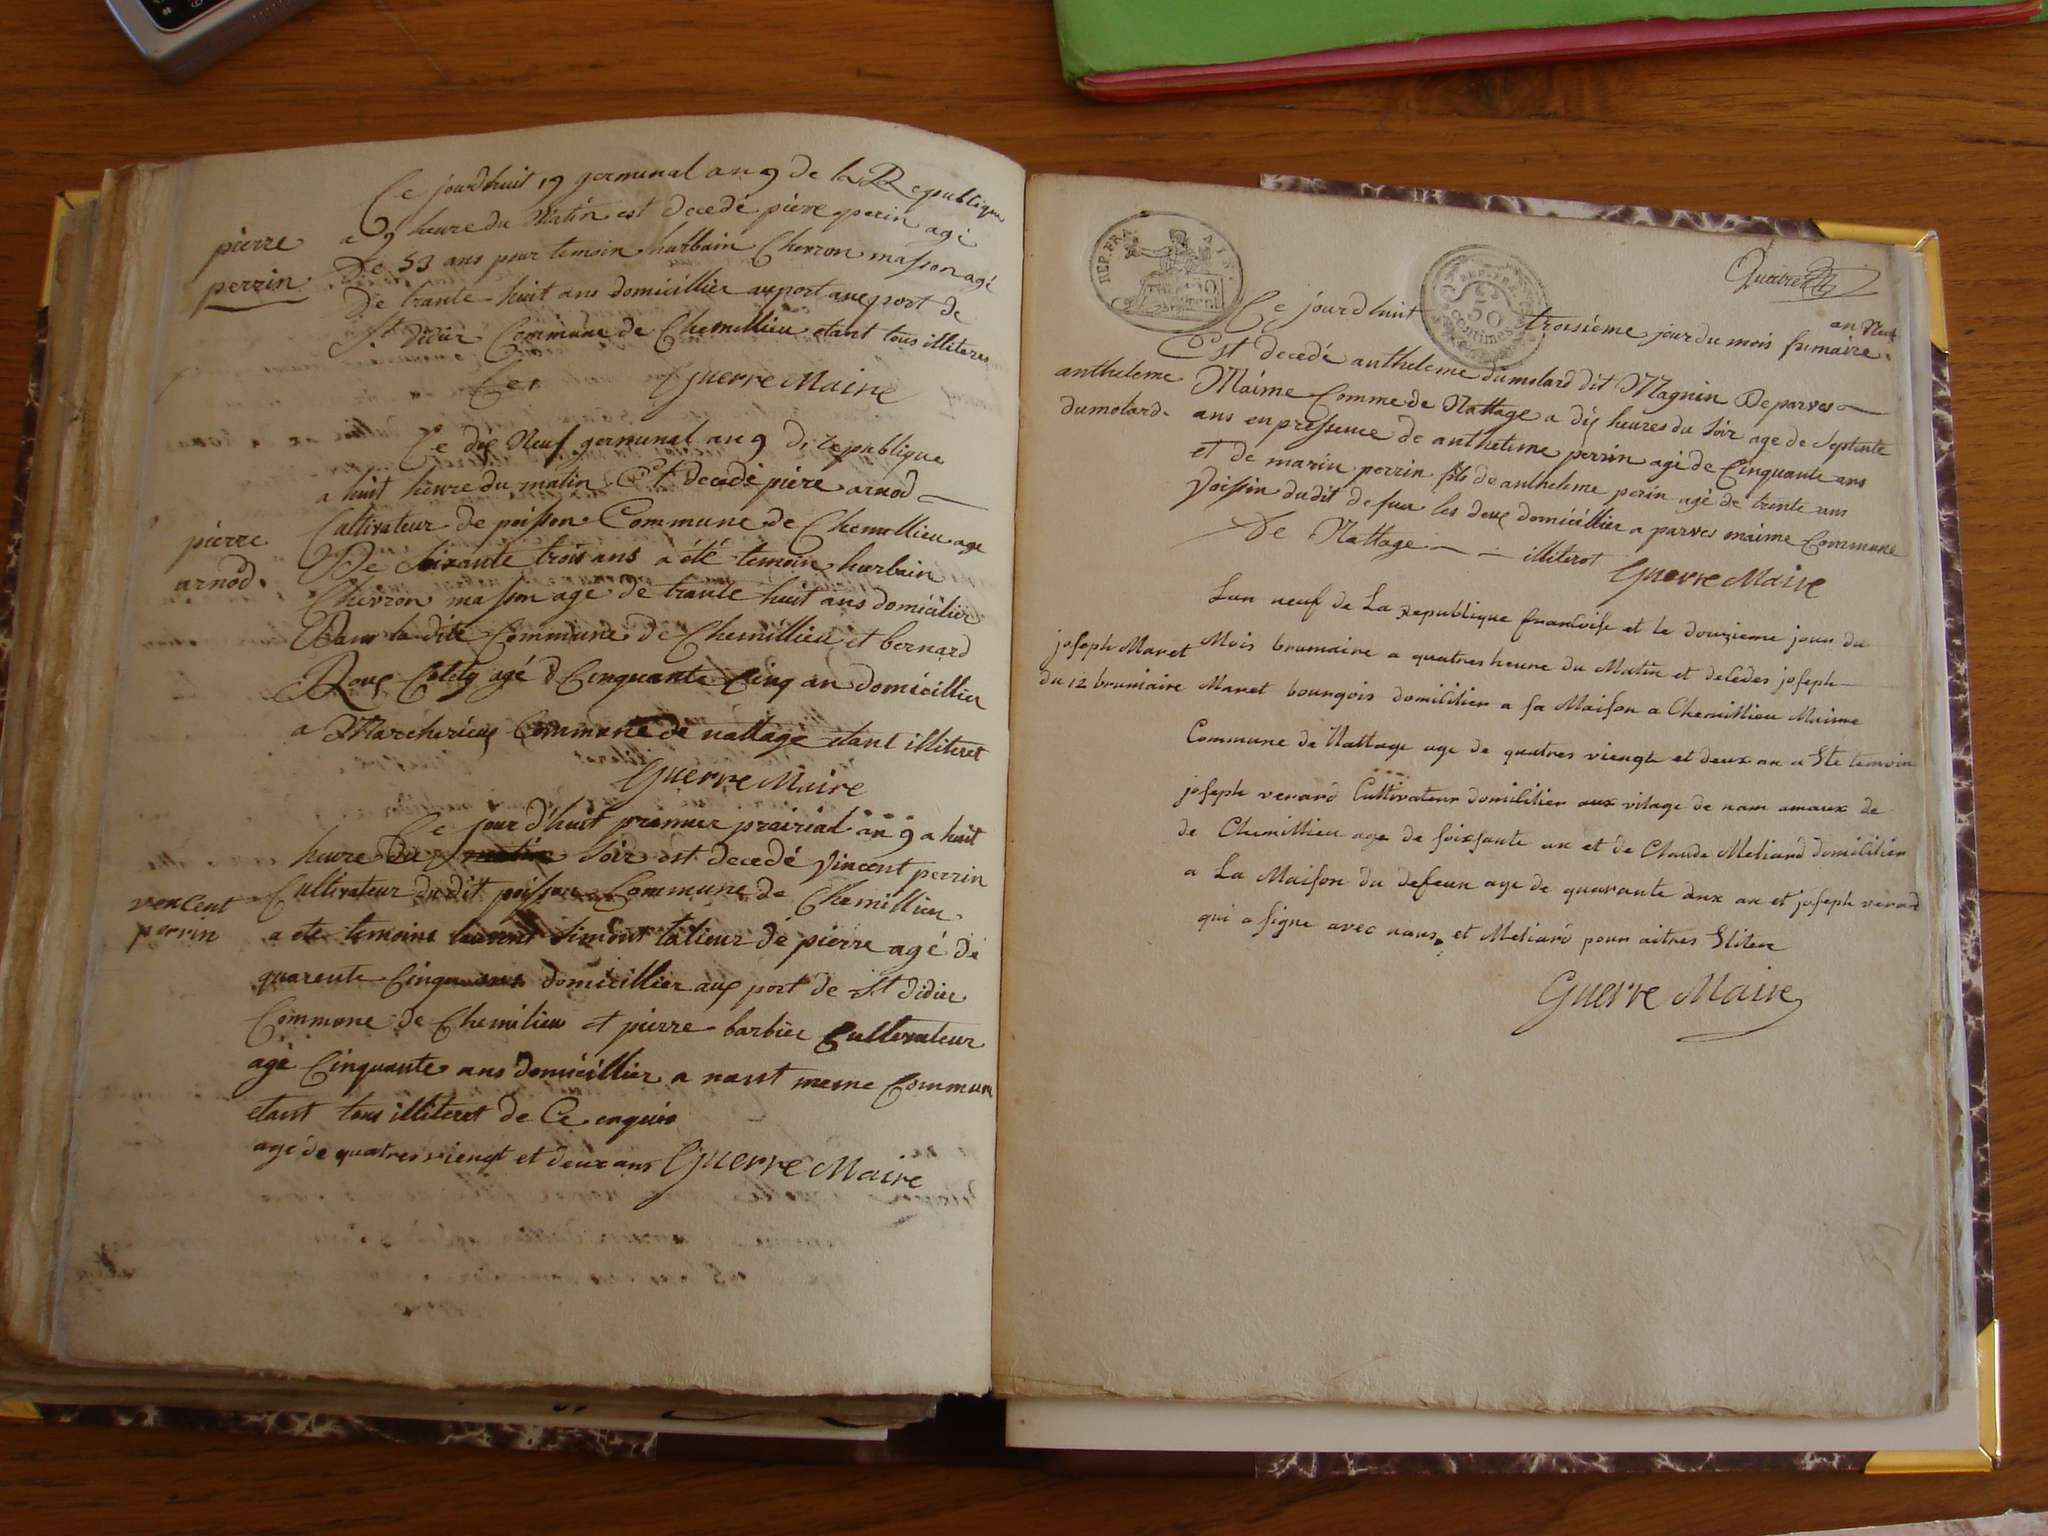 Ce jourdhuit 19 germinal an 9 de la Republique
a 9 heure du Matin est decedé piere perin agé
pierre
perrin
de 53 ans pour temoin hurbain Chevron masson agé
de trante huit ans domicillier au port
St didier Commune de Chemillieu etant tous illiteres
Guerre Maire
Ce dix Neuf germinal an 9 de republique
a huit heure du matin Est decedé piere arnod
pierre
arnod.
Cultivateur de poisson Commune de Chemillieu age
De Soixante trois ans a été temoin hurbain
Chevron masson age de trante huit ans domicilier
Dans la dite Commune de Chemillieu et bernard
Roux agé d Cinquante Cinq an domicillier
a Commune de nattage etant illiteret
Guerre Maire
Ce jour d'huit premier prairial an 9 a huit
heure du Soir est decedé Vincent perrin
vencent
perrin
Cultivateur du dit poisson Commune de Chemillieu
a été temoins Simont talieur de pierre agé de
quarente Cinq ans domicillier aux port de St didier
Commune de Chemilieu et pierre barbier Cultivateur
agé Cinquante ans domicillier a nant meme Commune
etant tous illiteret de Ce enquis
age de quatres viengt et deux ans Guerre Maire
REP. FRA.
50
centimes
Ce jourdhuit troisiéme jour du mois frimaire an Neuf
Est decedé antheleme dumolard dit Magnin De parves
antheleme
dumolard.
Maime Comme de Nattage a dix heures du Soir age de Septente
ans en pressence de antheleme perrin agé de Cinquante ans
et de marin perrin fils de antheleme perin agé de trente ans
Voissin dudit defun les deux domicillier a parves maime Commune
De Nattage illiterot Guerre Maire
Lan neuf de La Republique francoise et le douzieme jour du
joseph Maret
du 12 brumaire
Mois brumaire a quatres heure du Matin et decedes joseph
Maret bourgois domicilier a sa Maison a Chemillieu Maime
Commune de Nattage age de quatres viengt et deux an a Ete temoin
joseph verard Cultivateur domicilier aux vilage de nam amaux de
de Chemillieu age de soixsante an et de Claude Meliand domicilier
a La Maison du defeun age de quarante deux an et joseph verard
qui a signe avec nous, et Meliard pour aitres Eliter
Guerre Maire